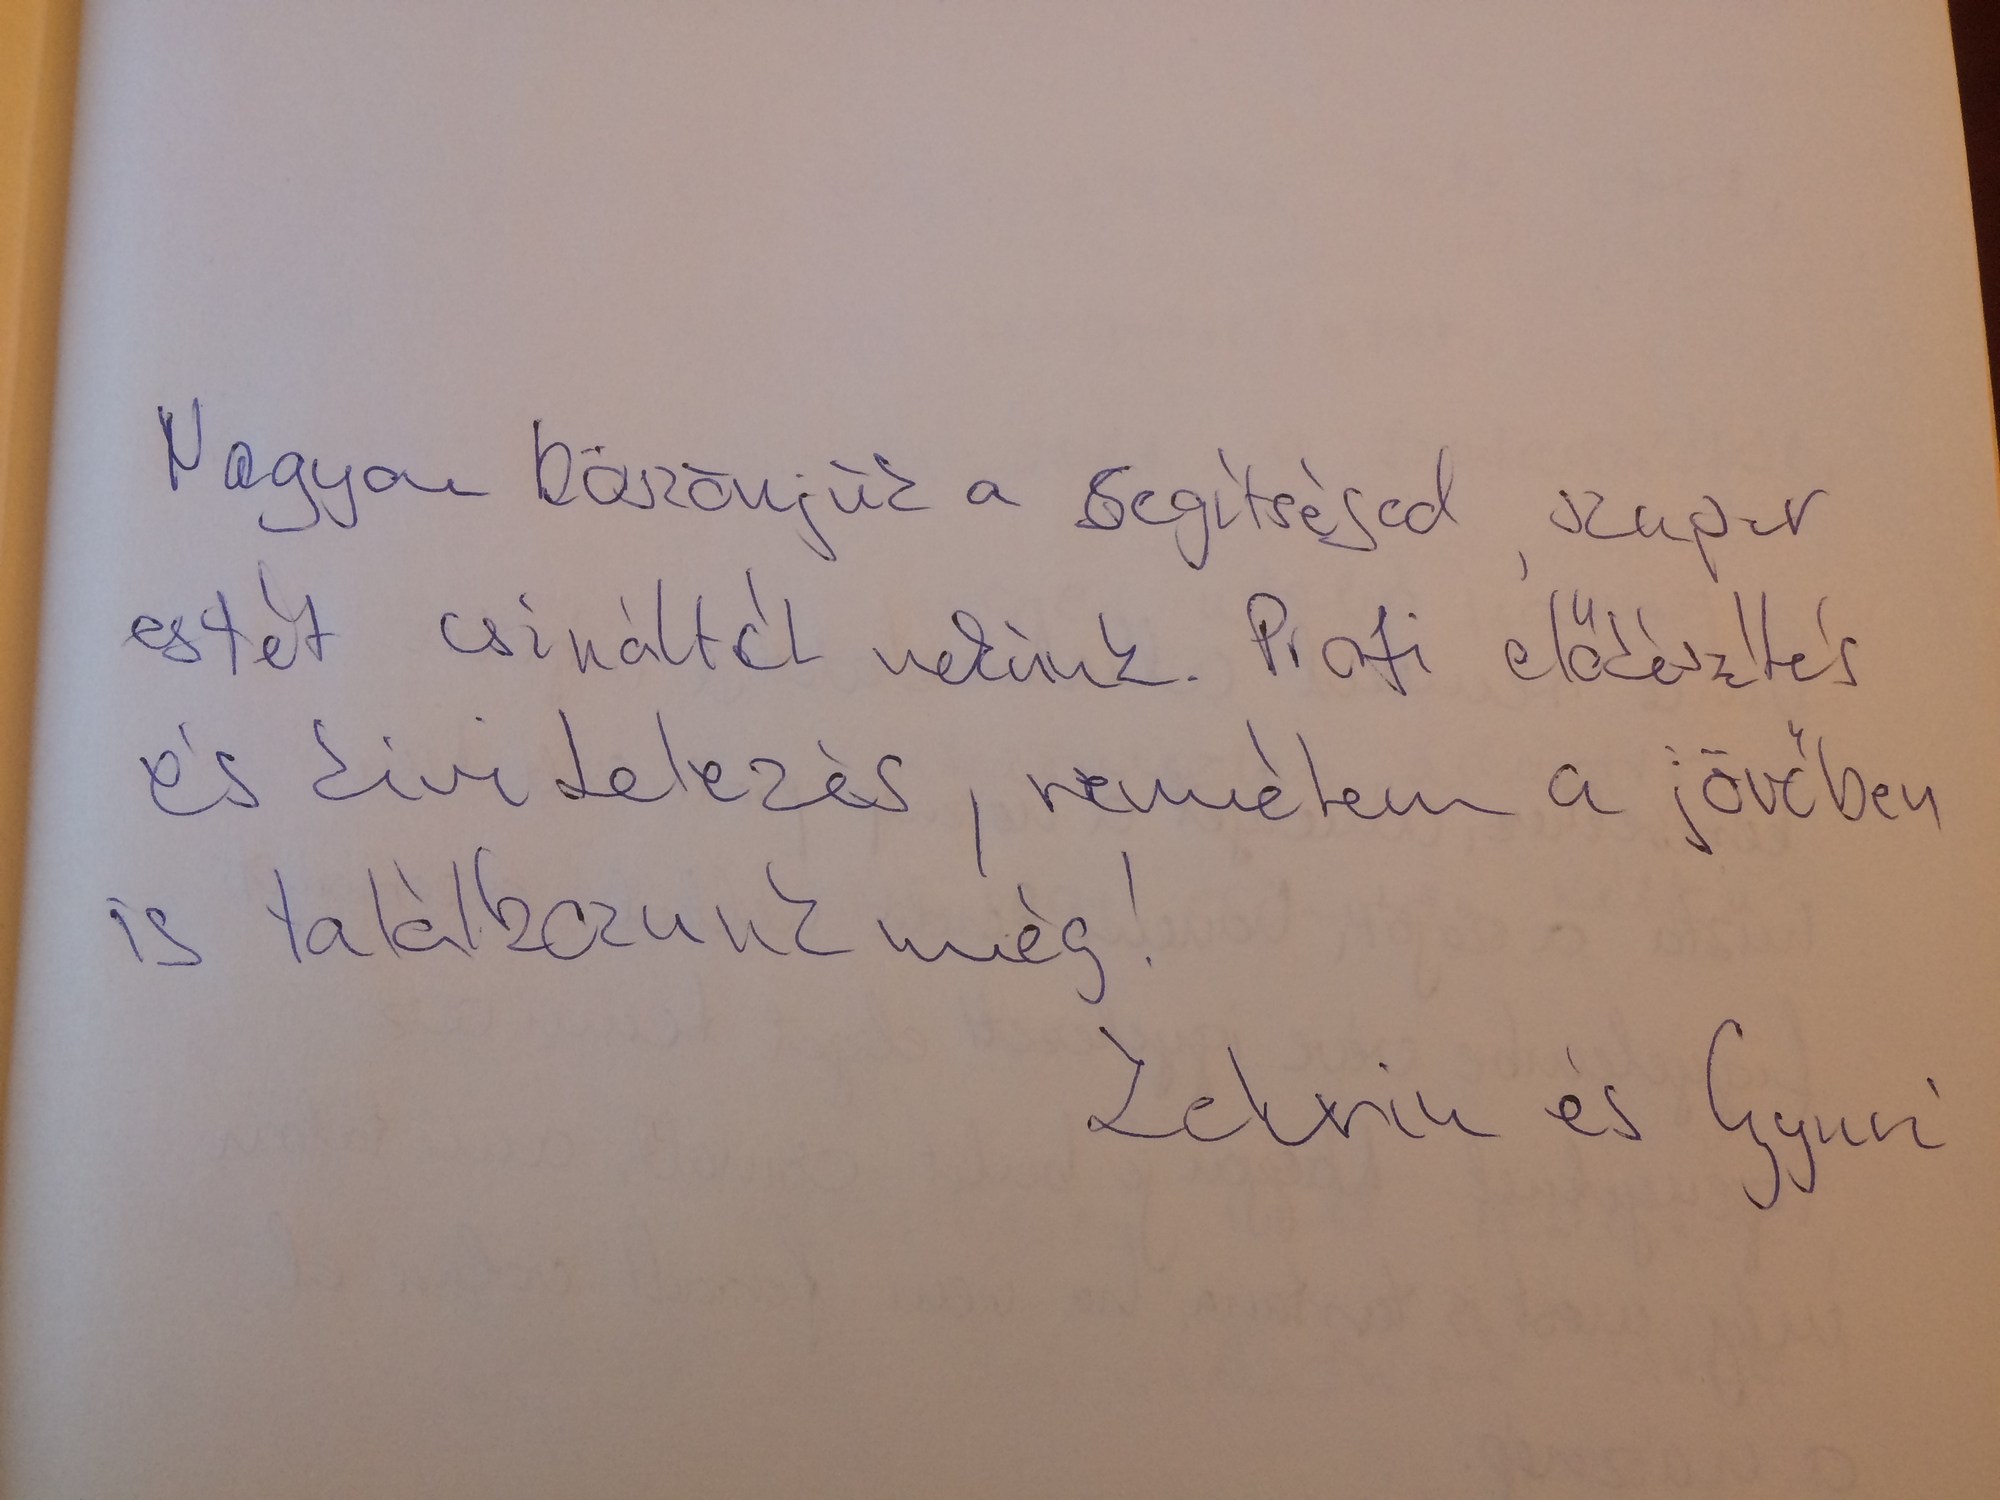 Nagyon köszönjük a segítséged, szuper
estét csináltál nekünk. Profi előkészítés
és kivitelezés, remélem a jövőben
is találkozunk még!
és Gyuri